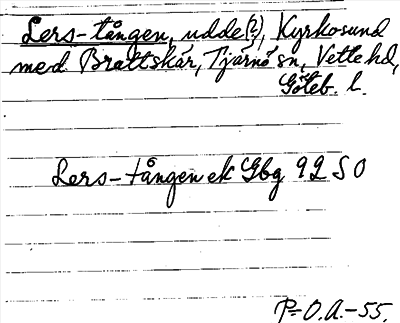 Lers-tången, udde(?), Kyrkosund
med Brattskär, Tjärnö sn, Vette hd,
Göteb. l.
Lers-tången ek Gbg 92 SO
P-O.A.-55.